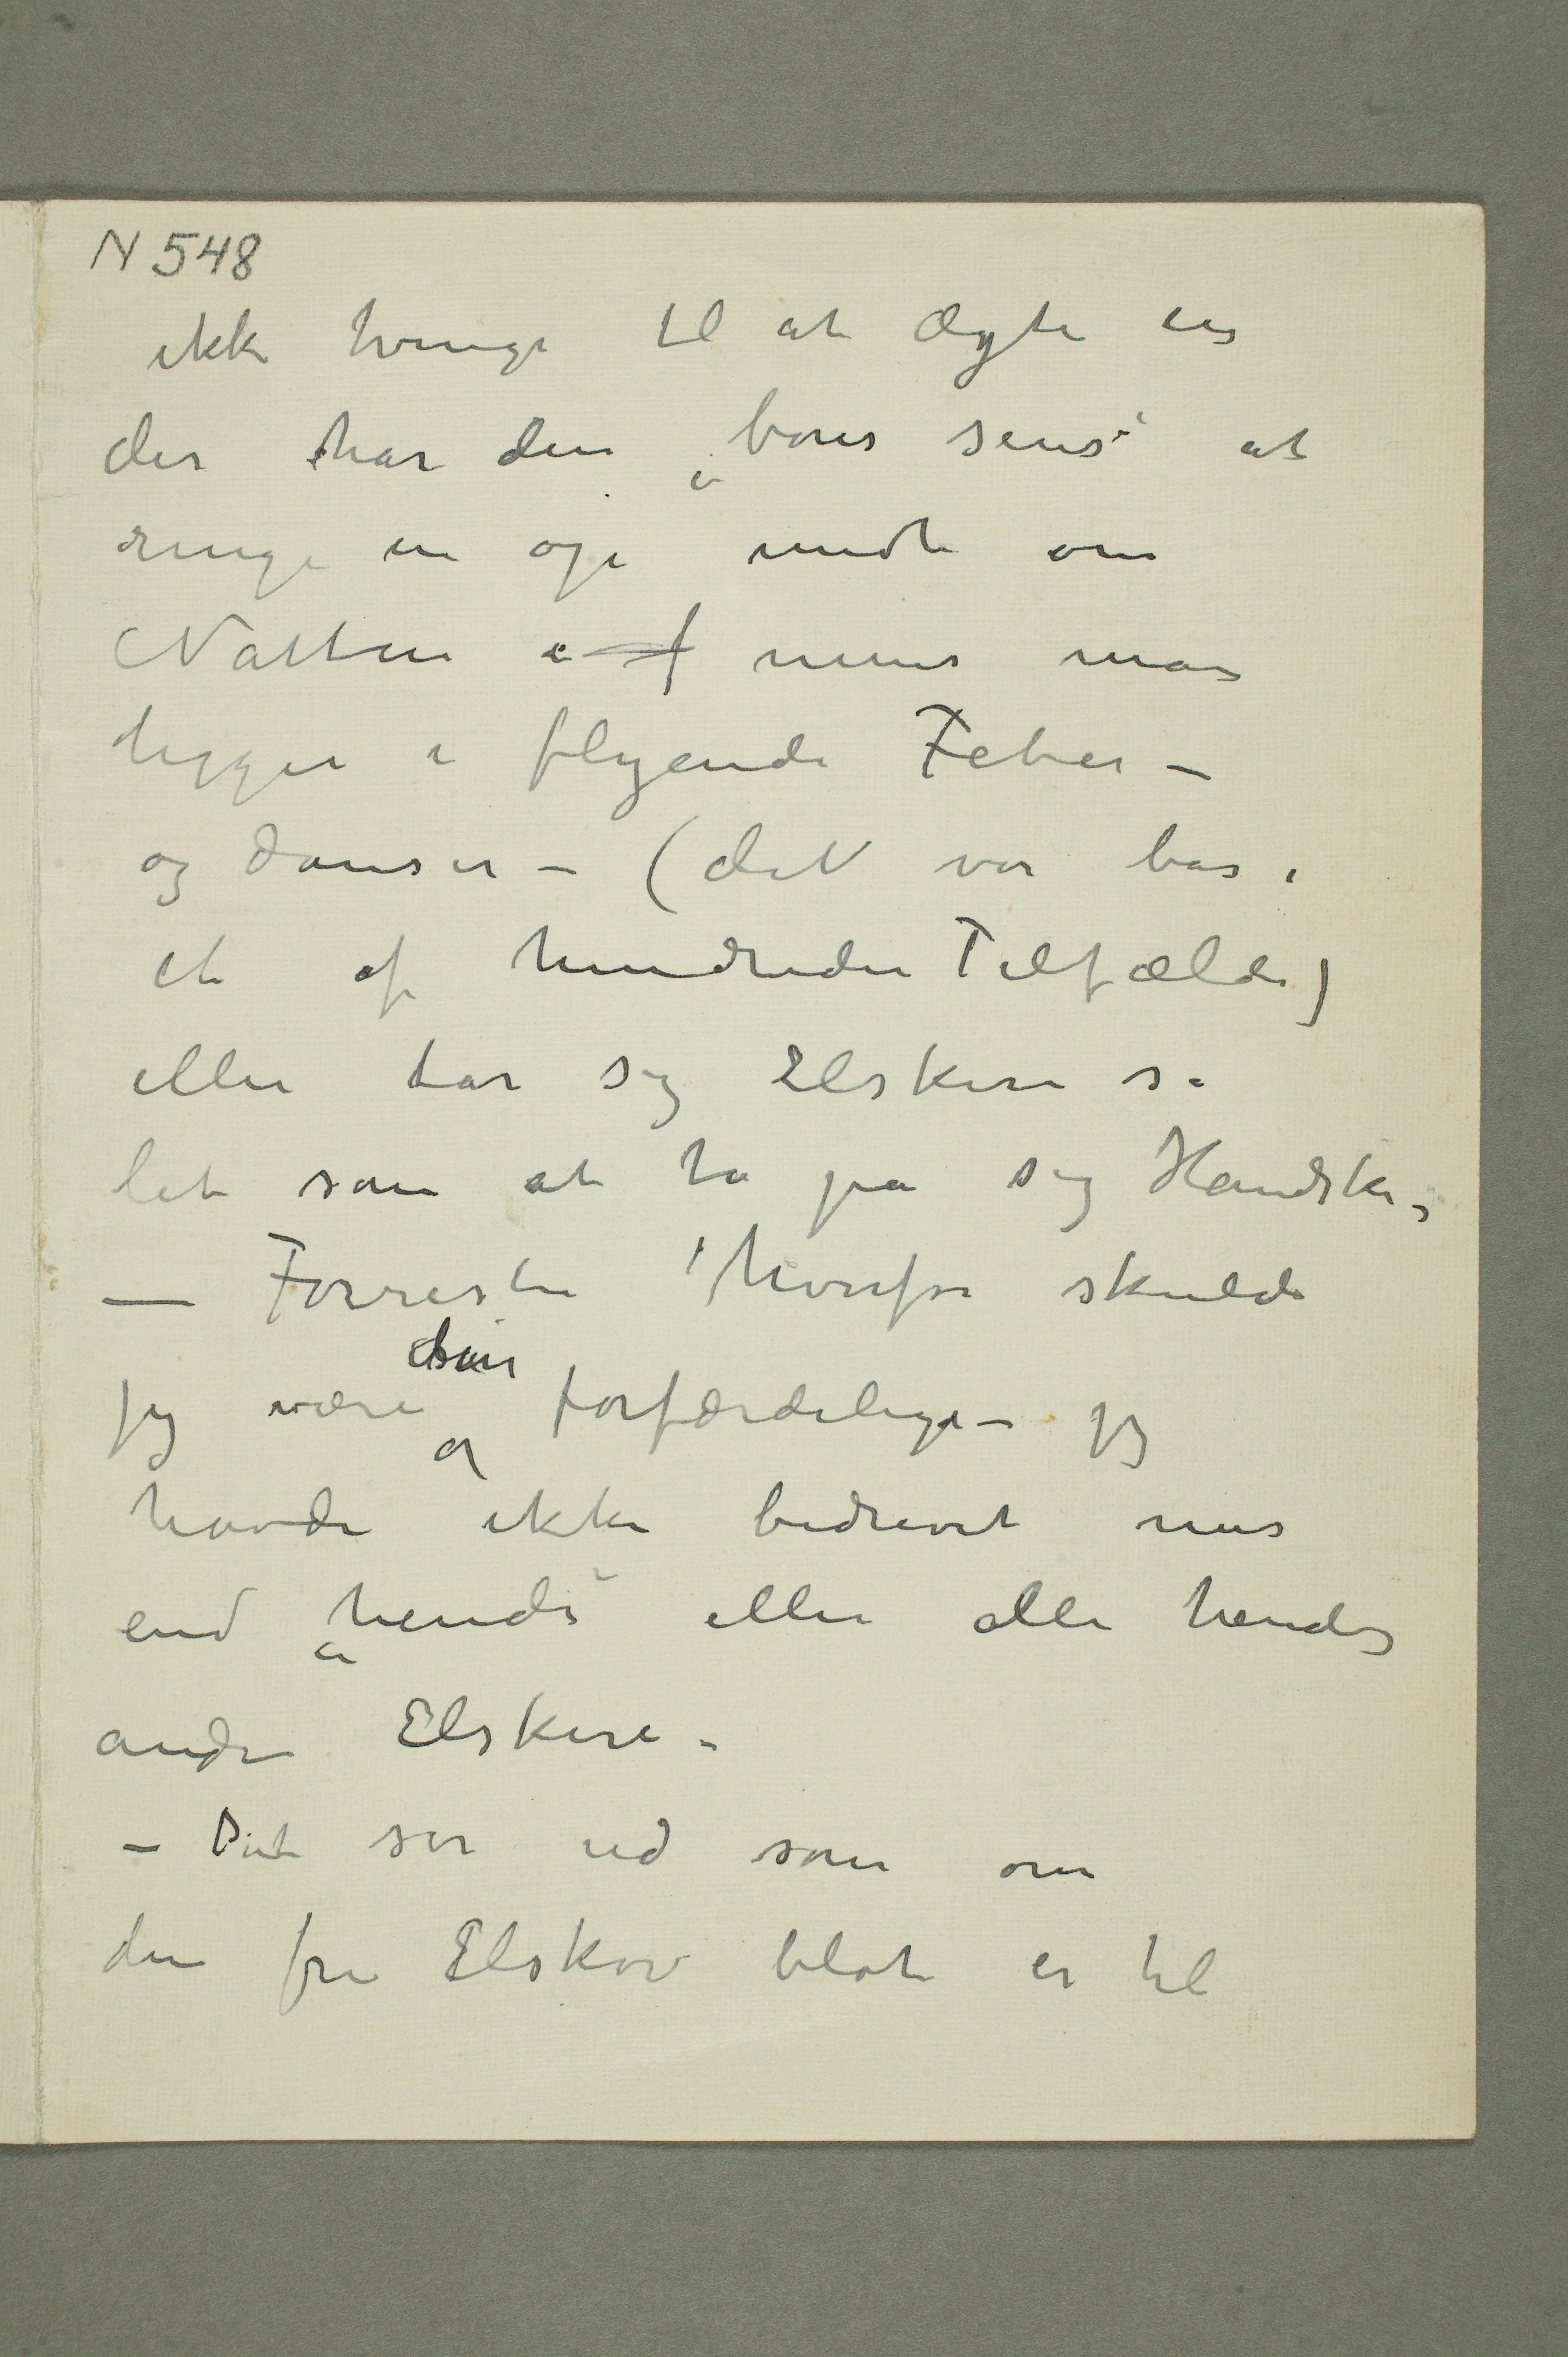 N 548
ikke tvinge til at ægte en
der har den „bons sens“ at
ringe en op midt om
Natten i f mens man
ligger i flyende Feber –
og danser – (det var bas i
et af hundreder Tilfælde)
eller tar sig Elskere så
let som at ta på sig Handske,
— Forresten hvorfor skulde
jeg være den forfærdelige – jeg
havde ikke bedrevet mer
end „hende“ eller alle hendes
andre Elskere –
– Det ser ud som om
den fri Elskov blot er til